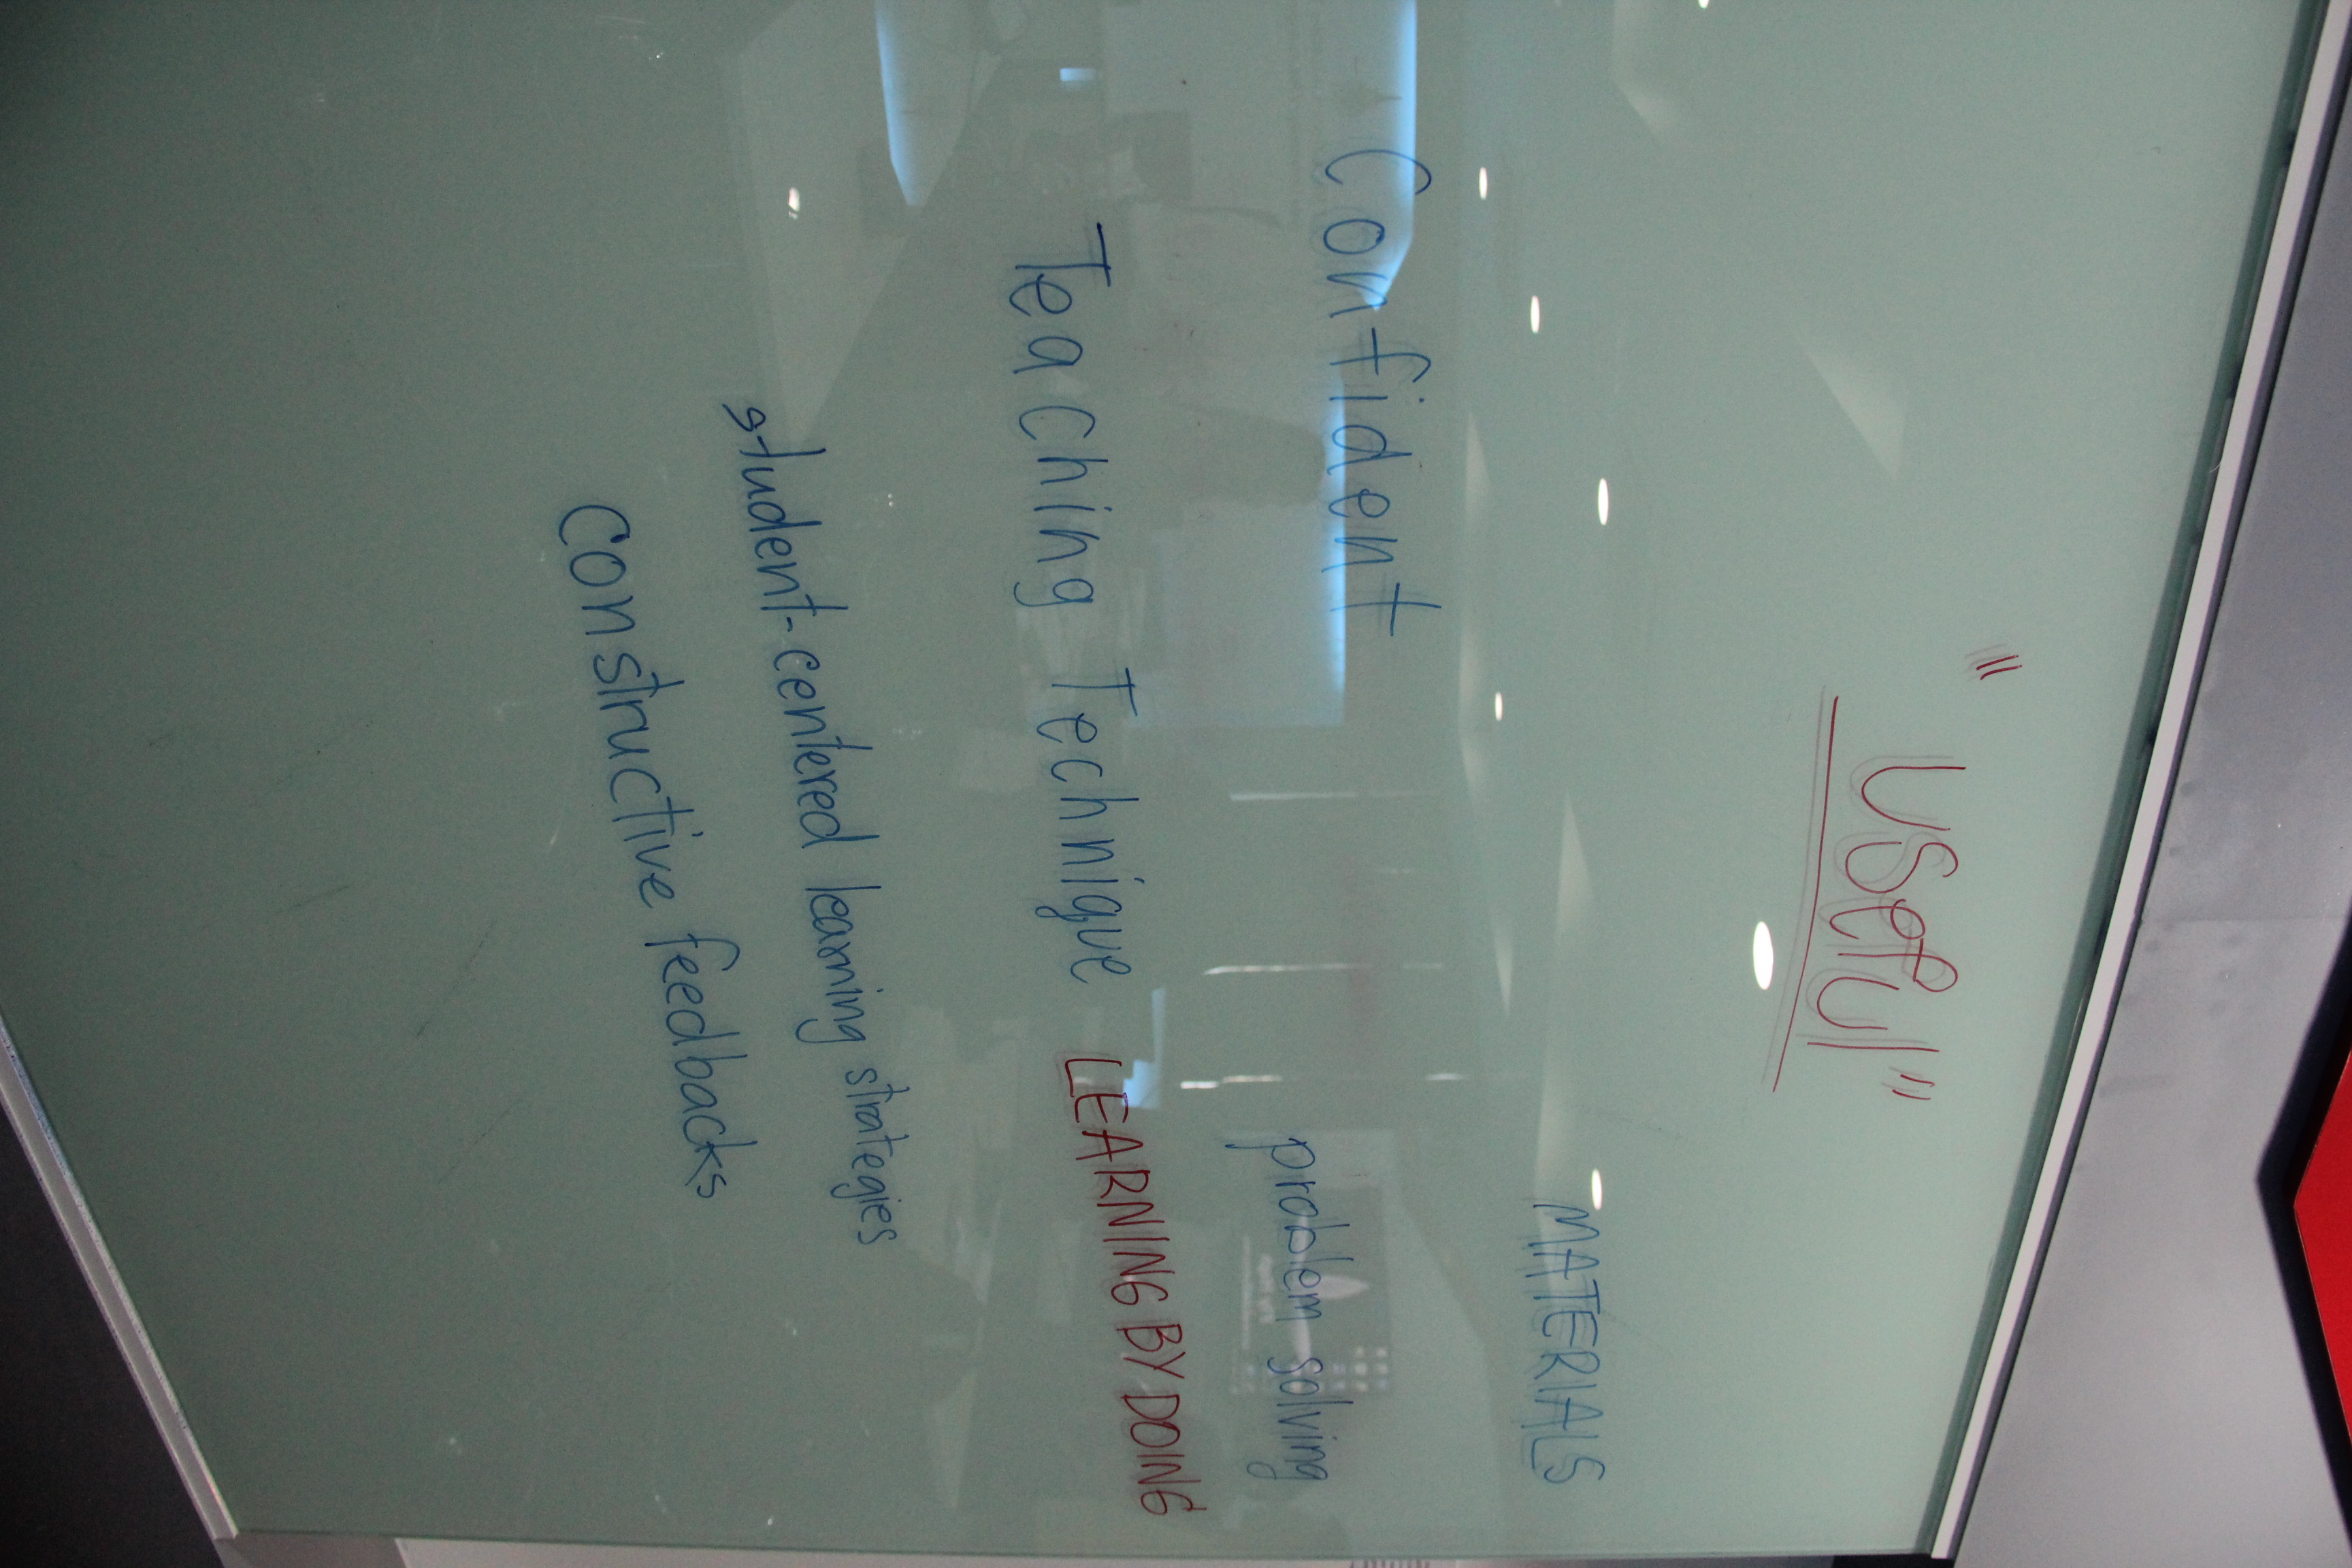 "Useful"
MATERIALS
Confident
problem solving
Teaching Technique
LEARNING BY DOING
student-centered learning strategies
Constructive feedbacks